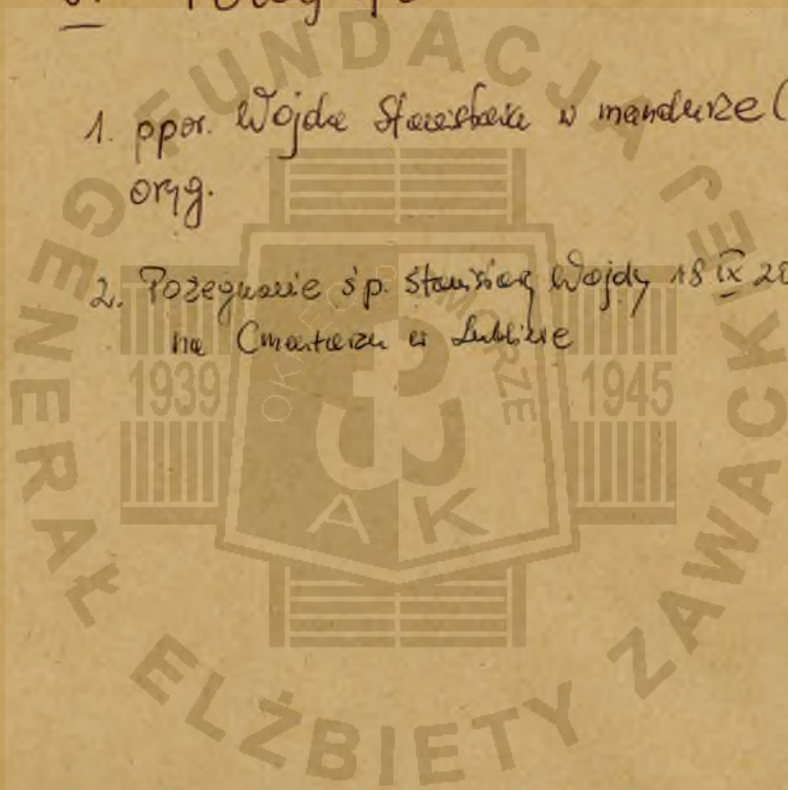 1. ppor. Wojda Stanisława w mundurze (
oryg.
2. Pożegnanie śp. Stanisławy Wojdy 18 IX 20
na Cmentarzu w Lublinie
FUNDACJA
GENERAŁ ELŻBIETY ZAWACKIEJ
OKRĘGU POMORZE
1939
1945
AK